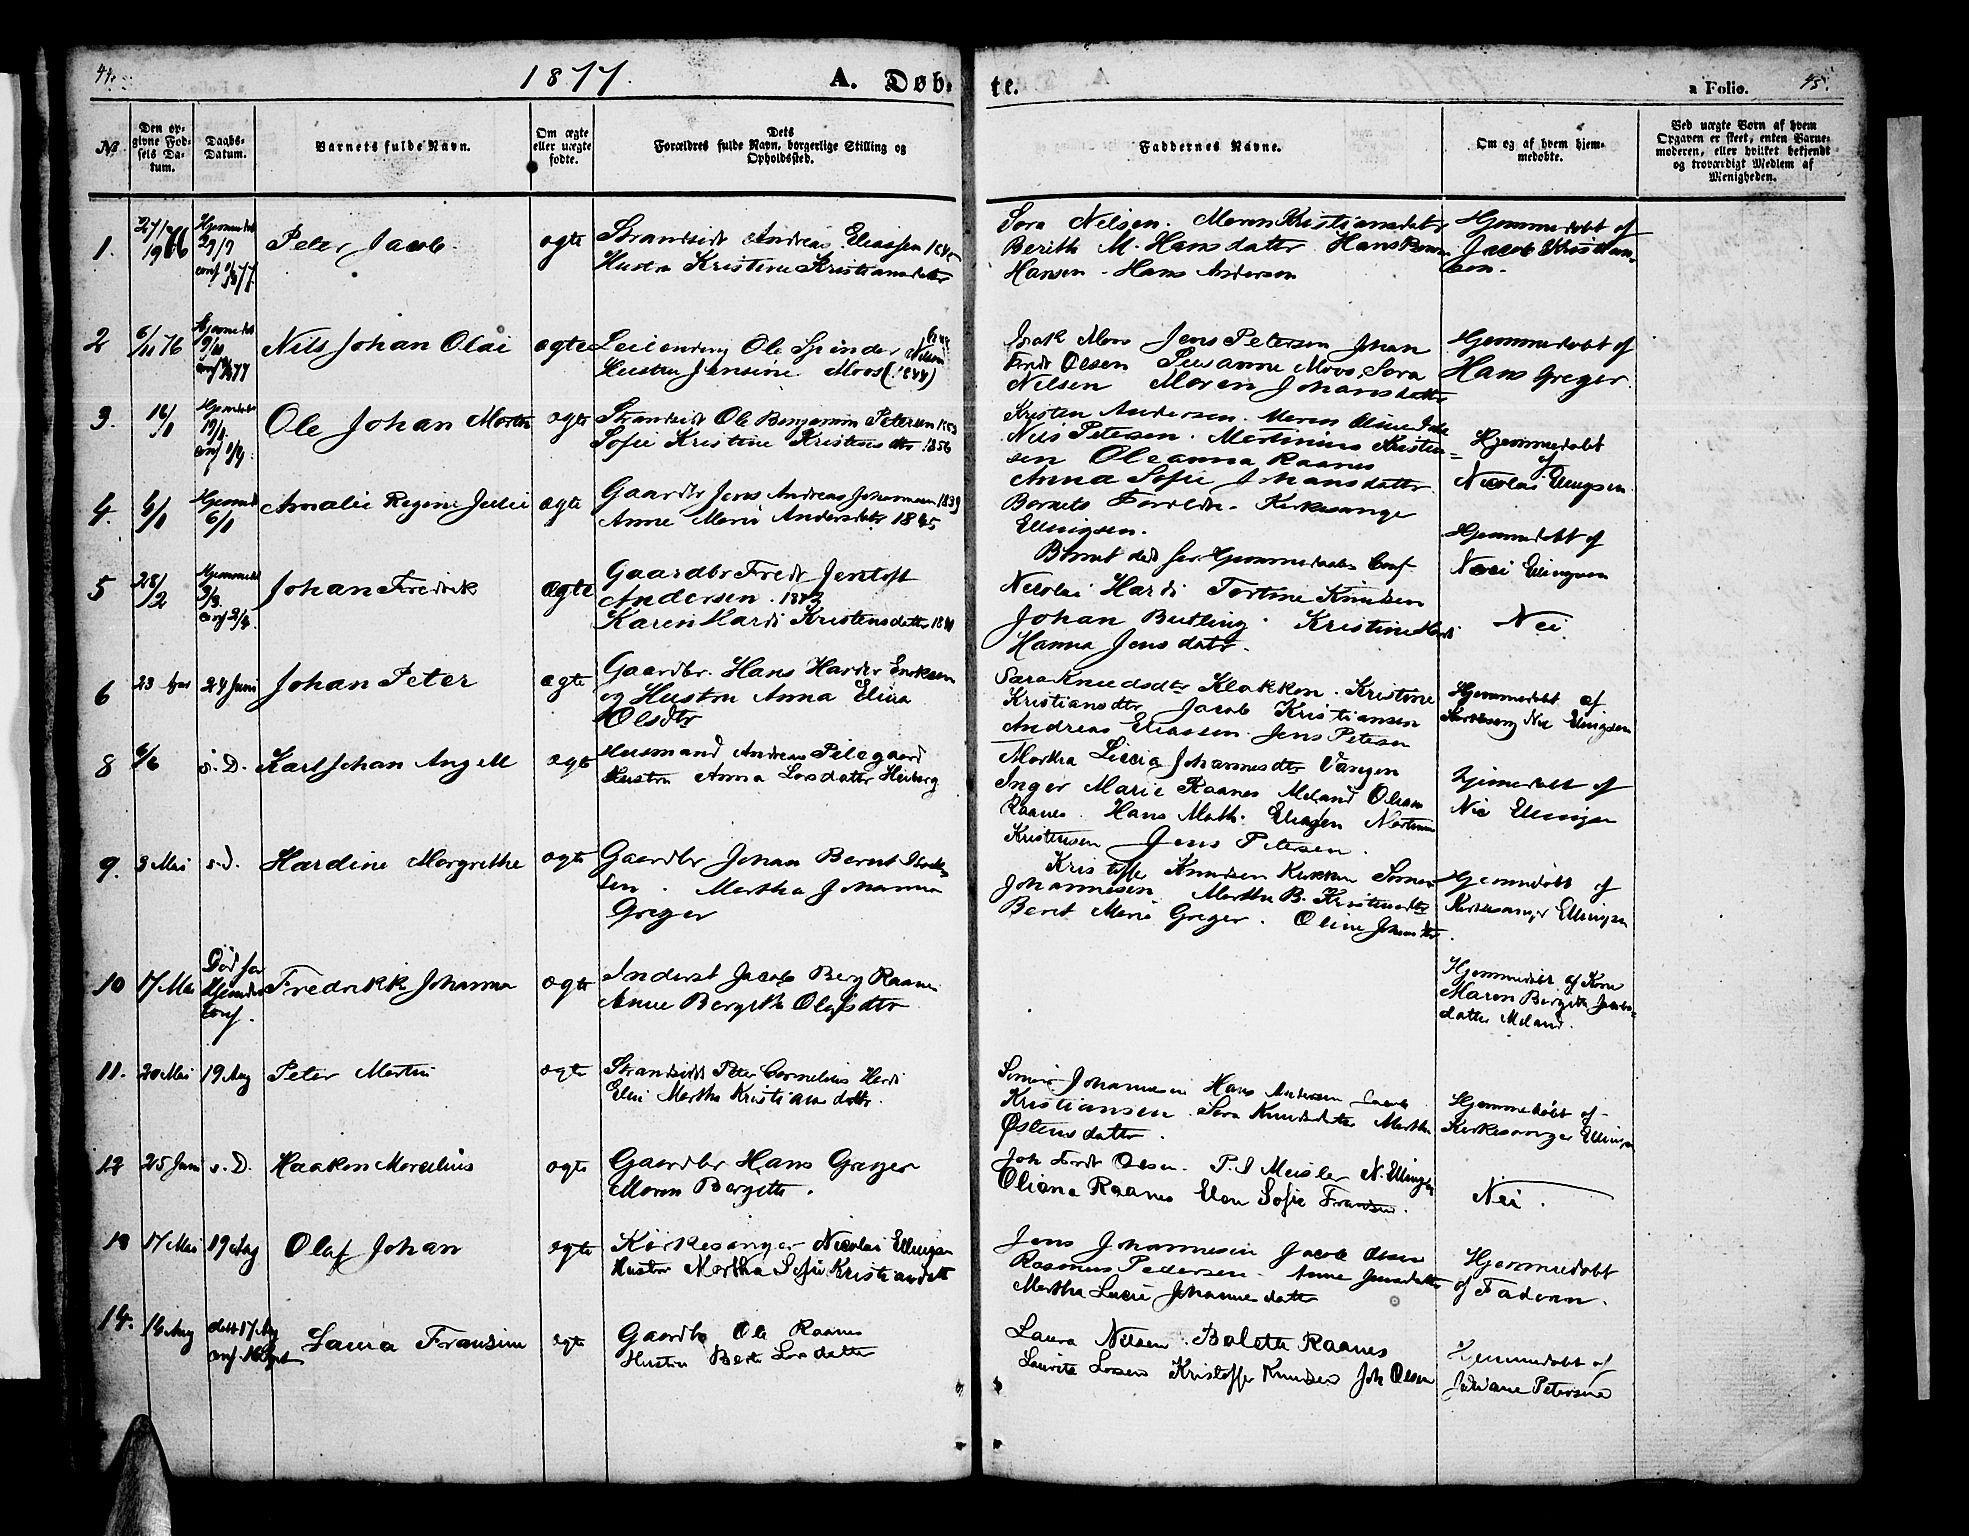 44.
1877.
A. Døb-
te.
a Folio.
45.
No
Den op-
givne Fød-
sels Da-
tum.
Daabs-
Datum.
Barnets fulde Navn.
Om ægte
eller uægte
fødte.
Dets
Forældres fulde Navn, borgerlige Stilling og
Opholdssted.
Faddernes Navne.
Om og af hvem hjem-
medøbte.
Ved uægte Børn af hvem
Opgaven er skeet, enten Barne-
moderen, eller hvilket bekjendt
og troværdigt Medlem af
Menigheden.
1.
Peter Jacob
ægte
Strandsidr Andreas Eliassen
Hustru Kristine Kristiansdatter
Sara Nilsen. Maren Kristiansdatr
Berith M. Hansdatter Hans
Hansen. Hans Andersen
Hjemmedøbt af
Jacob Kristian-
sen.
2
6/11 76
Nils Johan Olai
ægte
Leilending Ole
Hustru Jensine Moos (1844)
Isak Moos Jens Petersen Johan
Fredr Olsen Susanne Moos, Sara
Nilsen Maren Johansdatter
Hjemmedøbt af
Hans Greger
3.
16/1
Ole Johan Martin
ægte
Strandsidr Ole Benjamin Petersen
Sofie Kristine Kristensdtr 1856
Kristen Andersen. Maren
Nils Petersen. Martinius Kristen-
sen Oleanna Raanes
Anna Sofie Johansdatter
Hjemmedøbt
af
Nicolai Ellingsen
4.
6/1
6/1
Amalie Regine Julie
ægte
Gaardbr Jens Andreas Johannesen 1839
Anne Marie Andersdatr 1845
Barnets Forældre. Kirkesanger
Ellingsen.
Barnet død før Hjemmedaabs Conf.
Hjemmedøbt af
Ellingsen
5
28/2
3/3
Johan Fredrik
ægte
Gaardbr Fredr Jentoft
Andersen.
Karen Hardi Kristensdatter
Nicolai Hardi Tortine Knudsen
Johan Butling. Kristine Hardi
Hanna Jensdatr.
Nei.
6
24 Juni
Johan Peter
ægte
Gaardbr. Hans Harder Eriksen
og Hustru Anna Elina
Olsdtr
Sara Knudsdtr Klakken. Kristine
Kristiansdtr Jacob Kristiansen
Andreas Eliassen. Jens Petersen
Hjemmedøbt af
Kirkesang Nic Ellingsen
8
6/6
s. D.
Karl Johan Angell
ægte
Husmand Andreas Pilegaard
Hustru Anna Larsdatter Heiberg
Martha Liccia Johannesdtr Vangen
Inger Marie Raanes Meland Olsen
Raanes. Hans Math. Eliassen Martinus
Kristensen Jens Petersen.
Hjemmedøbt af
Nic Ellingsen
9.
3 Mai
s. D.
Hardine Margrethe
ægte
Gaardbr Johan Bernt
sen. Martha Johanna
Greger
Kristoffer Knudsen
Johannesen Martha B. Kristensdtr
Beret Marie Greger. Oline
Hjemmedøbt af
Kirkesanger Ellingsen
10
17 Mai
Død før
conf.
Fredrikke Johanna
ægte
Inderst Jacob Berg Raanes
Anne Bergithe Olufsdtr
Hjemmedøbt af Kone
Maren Bergitte Jacobs-
datter Meland.
11.
20 Mai
19 Aug
Peter Martin
ægte
Strandsidr Peter Cornelius Hardi
Elen Martha Kristiansdatter.
Johannesen Hans Andersen Jacob
Kristiansen. Sara Knudsdatter Martha
Østensdatter.
Hjemmedøbt af
Kirkesanger Ellingsen
12
25 Juni
s. D.
Haakon Marcelius
ægte
Gaardbr Hans Greger
Maren Bergitte.
Joh Fredr Olsen. P. S Meisler N. Ellingsen
Oliana Raanes Elen Sofie Fransen.
Nei.
13
17 Mai
19 Aug
Olaf Johan
ægte
Kirkesanger Nicolai Ellingsen
Hustru Martha Sofie Kristiansdatt
Jens Johannesen Jacob Olsen
Rasmus Pedersen. Anne Jensdatter
Martha Lucie Johannesdatter
Hjemmedøbt
af Faderen.
14.
14 Aug
døbt 17 Aug
conf. 16 Sept
Laura Fransine
ægte
Gaardbr Ole Raanes
Hustru Berit Larsdatter
Laura Nilsen. Bolette Raanes
Laurits Larsen Kristoffer Knudsen Joh Olsen
Hjemmedøbt af
Petersen